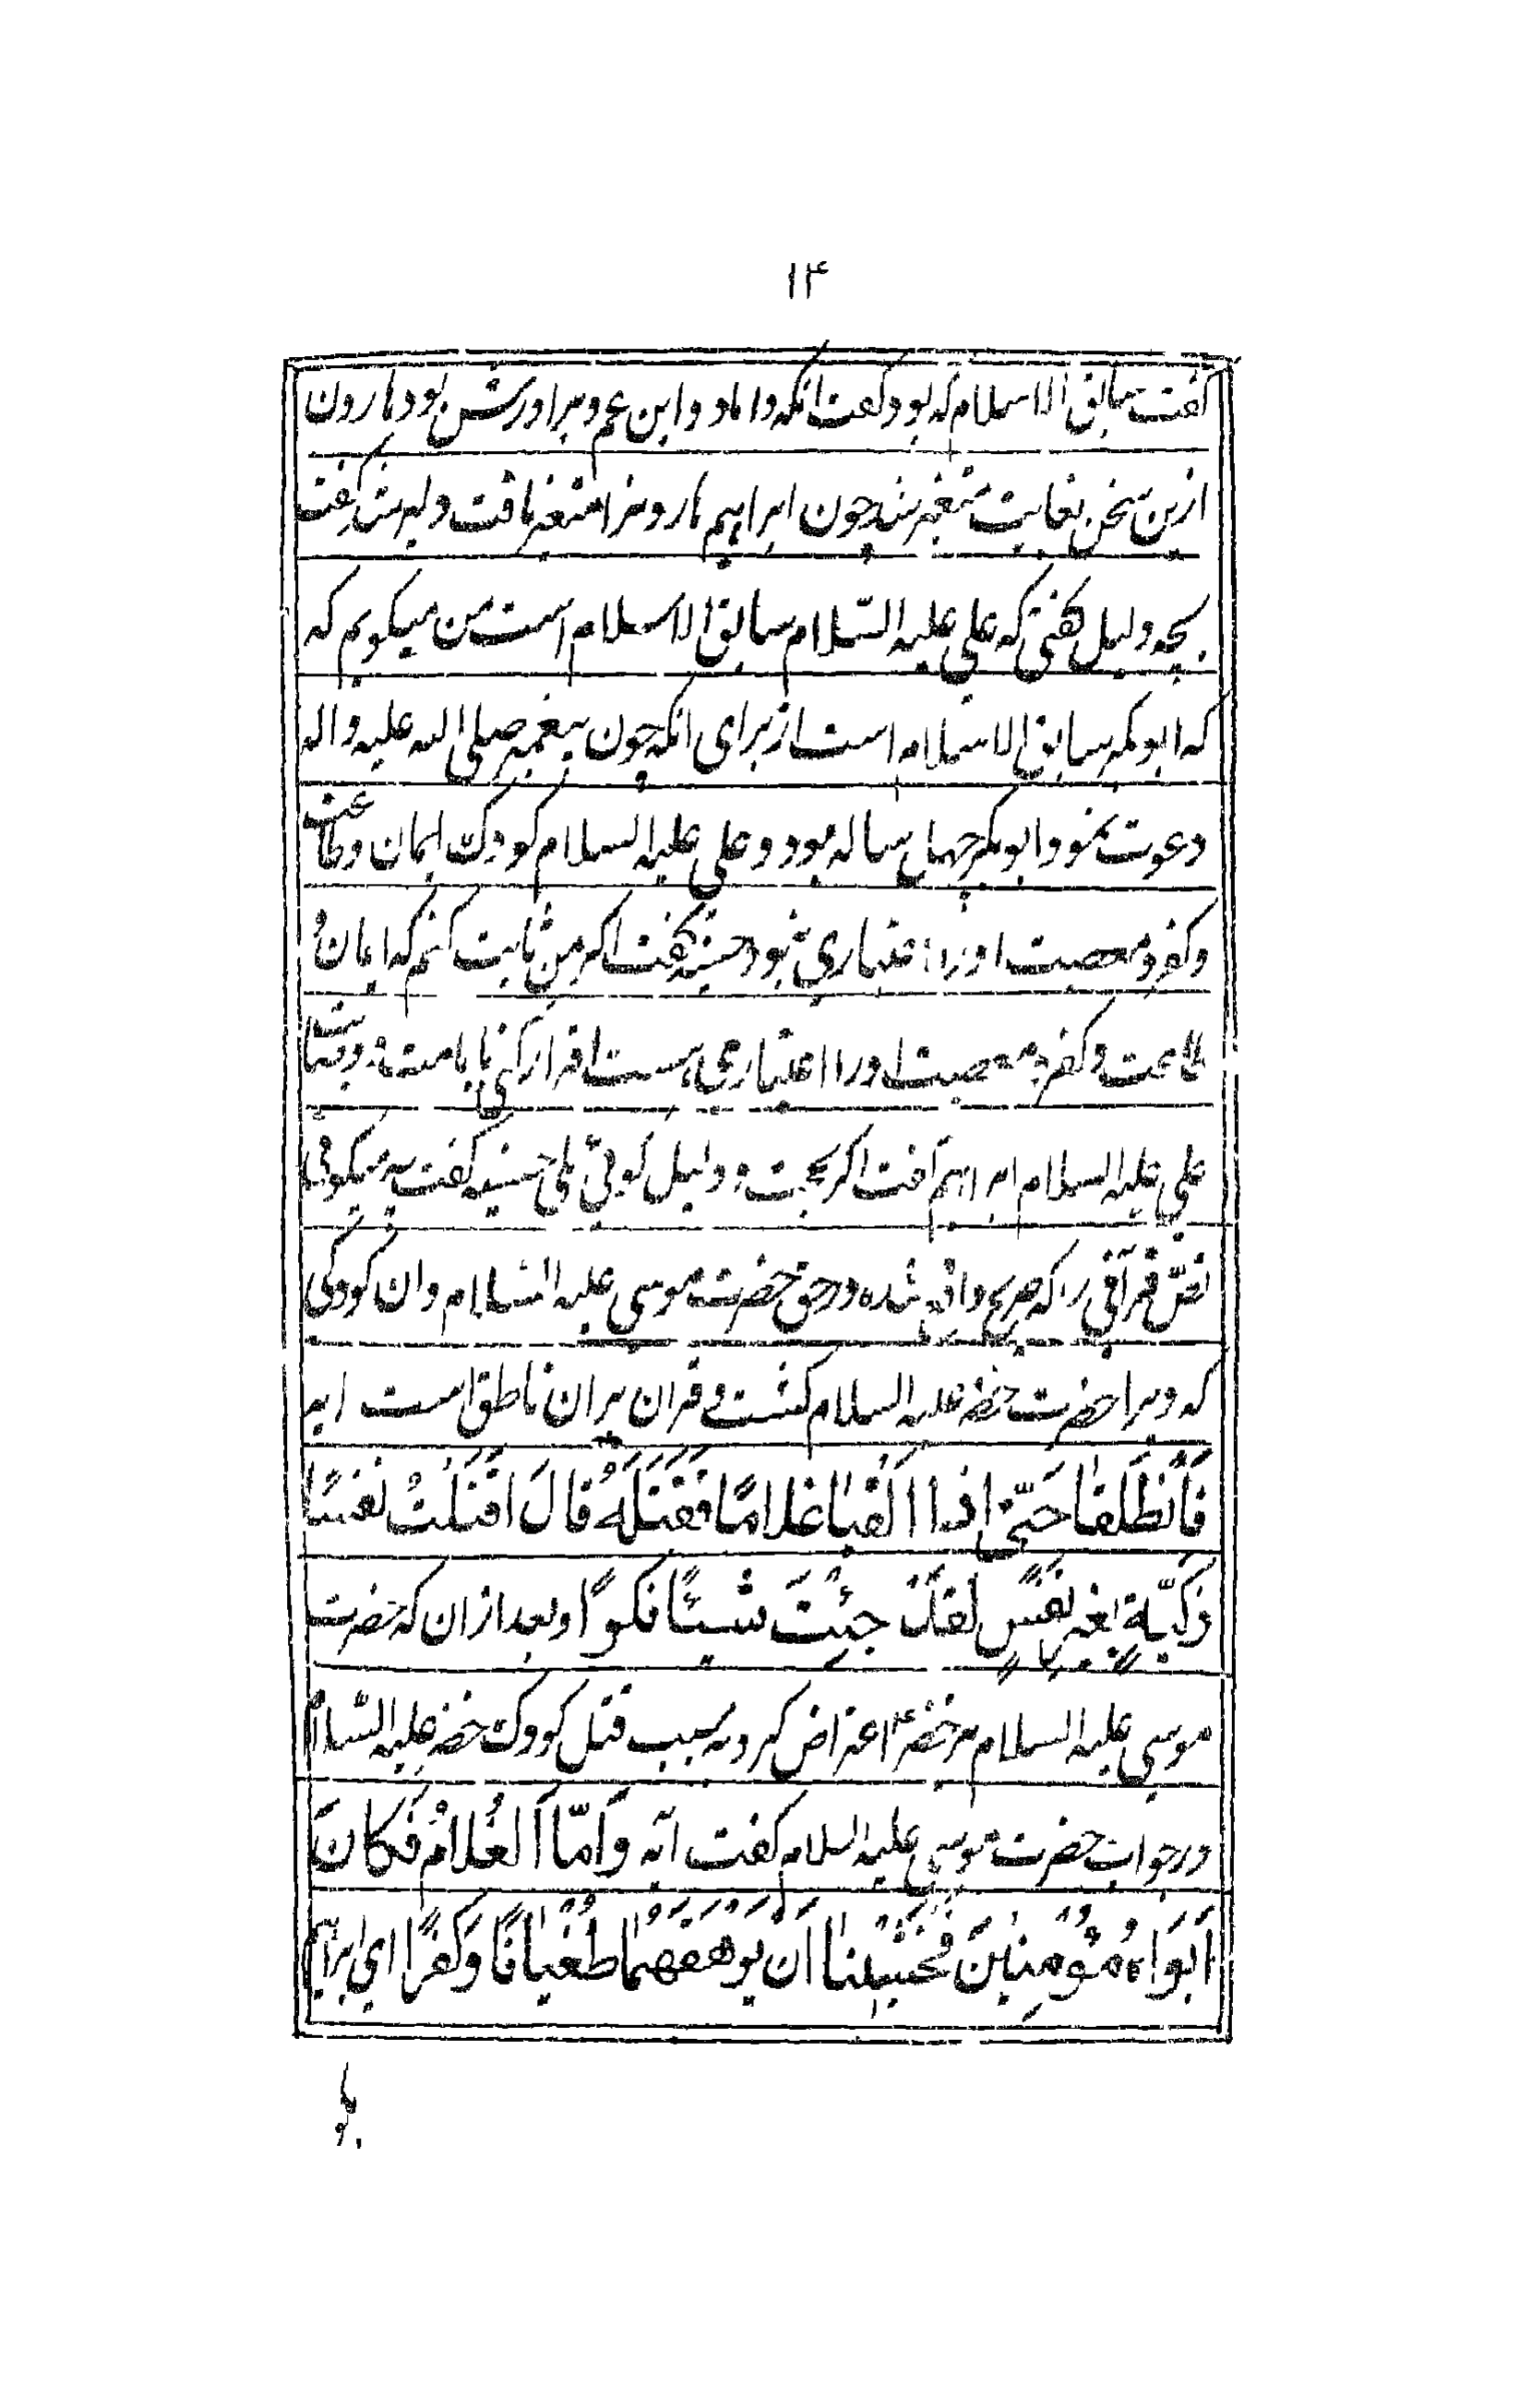 ۱۴
گفت سابق الاسلام که بود گفت انکه داماد و ابن عم و برادرش بود هارون
ازین سخن بغایت متغیر شد چون ابراهیم هارونرا متغیر یافت دلیر شد گفت
بچه دلیل گفتی که علی علیه السّلام سابق الاسلام است من میکویم که
که ابوبکر سابق الاسلام است از برای انکه چون پیغمبر صلی الله علیه واله
دعوت نمود ابوبکر چهل ساله بود و علی علیه السلام کودک ایمان وطاعت
وکفر و معصیت او را اعتباری نبود حسنیه گفت اکر من ثابت کنم که ایمان و
طاعت وکفر و معصیت او را اعتباری هست اقرار کنی بامامت و وصایت
علی علیه السلام ابراهیم گفت اکر بحجت و دلیل کوئی بلی حسنیه گفت چه میکوئی
نصّ قرآنی را که صریح واقع شده در حق حضرت موسی علیه السلام وان کودکی
که ویرا حضرت خضر علیه السلام کشت و قران بران ناطق است ایه
فَانْطَلَقٰا حَتّی اِذا الَقْیٰا غلامًا فَقَتَلَهُ قٰالَ اقَتَلْتَ نَفْسًا
زَکیّةٍ بغیر نفسٍ لَقَدْ جِئْتَ شیئًا نکرًا وبعد از ان که حضرت
موسی علیه السلام بر خضر ع اعتراض کرد به سبب قتل کودک خضر علیه السّلام
در جواب حضرت موسی علیه السلام گفت آیه وَاَمّا الْغُلامُ فَکانَ
اَبَوٰاهُ مُؤْمِنَیْنَ فَخَشینٰا اَنْ یُرْهِقَهُمٰا طُغْیٰانًا وَکُفْرًا ای ابراهیم